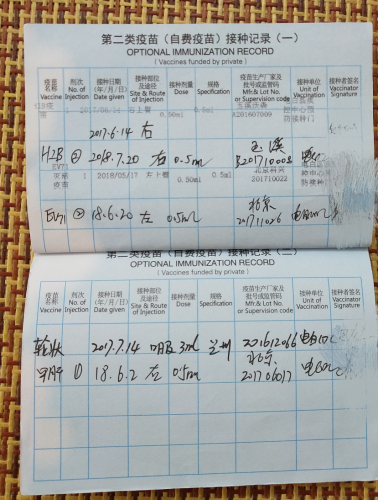 第二类疫苗（自费疫苗）接种记录（一）
OPTIONAL IMMUNIZATION RECORD
( Vaccines funded by private )
疫苗名称 Vaccine 剂次 No. of Injection 接种日期 (年/月/日) Date given 接种部位及途径 Site & Route of Injection 接种剂量 Dose 规格 Specification 疫苗生产厂家及批号或监管码 Mfr.& Lot No. or Supervision code 接种单位 Unit of Vaccination 接种者签名 Vaccinator Signature
2017/06/14 右上臂 0.50ml 0.5ml
2017.6.14 右
2018.7.20 右 0.5ml 玉溪
EV71
疫苗 1 2018/05/17 左上臂 0.50ml 0.5ml 北京科兴 201710022
EV71 ② 18.6.20 左 0.5ml 北京
第二类疫苗（自费疫苗）接种记录（二）
OPTIONAL IMMUNIZATION RECORD
( Vaccines funded by private )
疫苗名称 Vaccine 剂次 No. of Injection 接种日期 (年/月/日) Date given 接种部位及途径 Site & Route of Injection 接种剂量 Dose 规格 Specification 疫苗生产厂家及批号或监管码 Mfr.& Lot No. or Supervision code 接种单位 Unit of Vaccination 接种者签名 Vaccinator Signature
轮状 2017.7.14 口服 3ml 兰州 201612066
甲肝 ① 18.6.2 左 0.5ml 北京 201706017